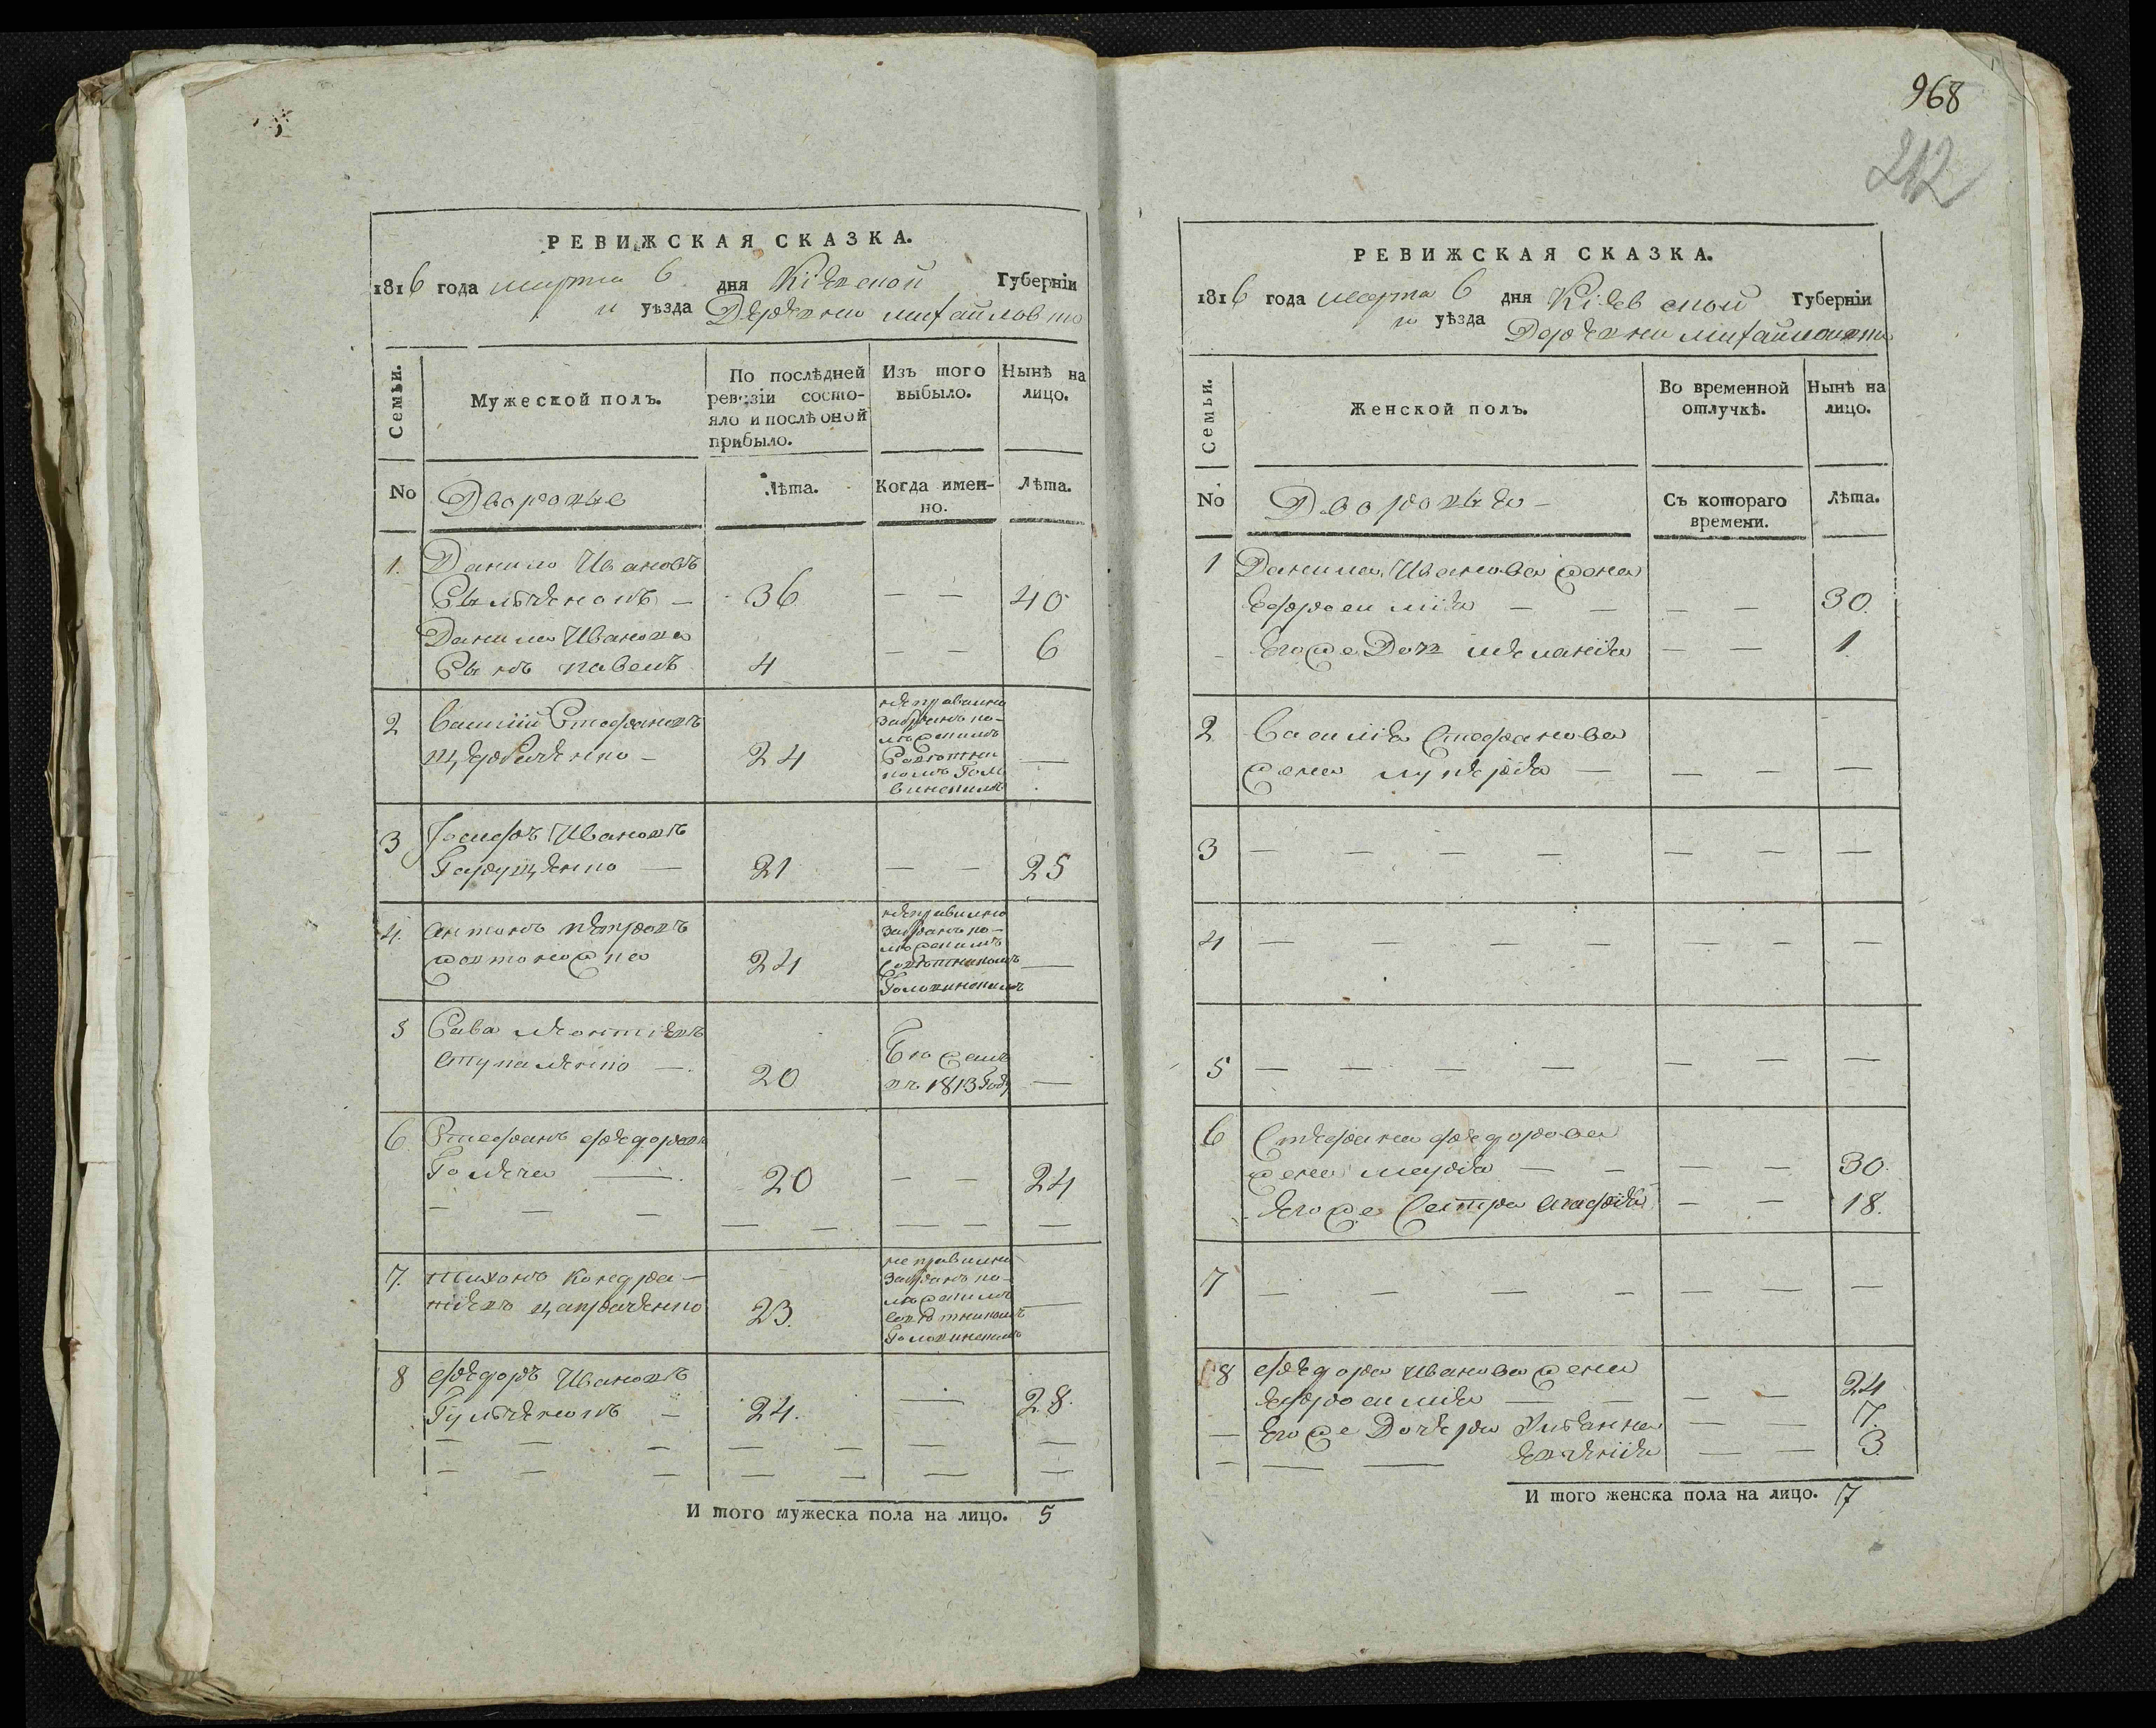 РЕВИЖСКАЯ СКАЗКА.
1816 года марта 6 дня Кіевской Губерніи
и уѣзда Деревни михайловки
Семьи.
Мужеской полъ.
По послѣдней
ревизіи состо-
яло и послѣ оной
прибыло.
Изъ того
выбыло.
Нынѣ на
лицо.
No
Дворовые
Лѣта.
Когда имен-
но.
Лѣта.
1. Данило Ивановъ
36 — — 40
Данила Иванова
Сынъ павелъ 4 — — 6
2 василій Стефановъ
24
неправилно
забранъ по-
мѣщикомъ
Совѣтни
комъ Голо
винскимъ
—
3 Іосифъ Ивановъ
Гарущенко — 21 — — 25
4. антонъ петровъ
24
неправилно
забранъ по-
мѣщикомъ
Совѣтникомъ
Головинскимъ
—
5 Сава леонтіевъ
Ступаленко — 20
Бѣжалъ
въ 1813 году —
6 Стефанъ федоровъ
20 — — 24
— — — — — — — —
7. тихонъ Кондра-
тіевъ 23.
неправилно
забранъ по-
мѣщикомъ
совѣтникомъ
Головинскимъ
—
8 федоръ Ивановъ
24. — 28.
— — — — — — —
— — — — — — —
И того мужеска пола на лицо. 5
968
212
РЕВИЖСКАЯ СКАЗКА.
1816 года марта 6 дня Кіевской Губерніи
и уѣзда Деревни михайловки
Семьи.
Женской полъ.
Во временной
отлучкѣ.
Нынѣ на
лицо.
No
Дворовые —
Съ котораго
времени.
Лѣта.
1 Данила Иванова жена
Ефросинія — — — — 30.
Егоже Дочь меланія — — 1
2 Василія Стефанова
жена лукерія — — — —
3 — — — — — — —
4 — — — — — — —
5 — — — — — — —
6 Стефана федорова
жена марія — — — — 30.
Егоже Сестра агафія — — 18.
7 — — — — — — —
8 федора иванова жена
Ефросинія — — — — 24
— Егоже Дочери Уліанна — — 7.
— — — Евгенія — — 3.
И того женска пола на лицо. 7